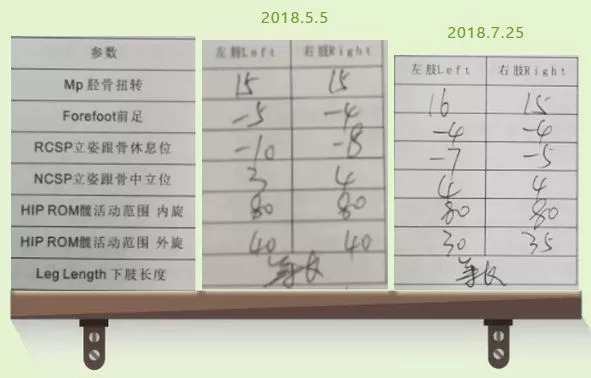 2018.5.5
2018.7.25
参数 左肢Left 右肢Right 左肢Left 右肢Right
Mp 胫骨扭转 15 15 16 15
Forefoot前足 -5 -4 -4 -4
RCSP立姿跟骨休息位 -10 -8 -7 -5
NCSP立姿跟骨中立位 3 4 4 4
HIP ROM髋活动范围 内旋 80 80 80 80
HIP ROM髋活动范围 外旋 40 40 30 35
Leg Length 下肢长度 等长 等长